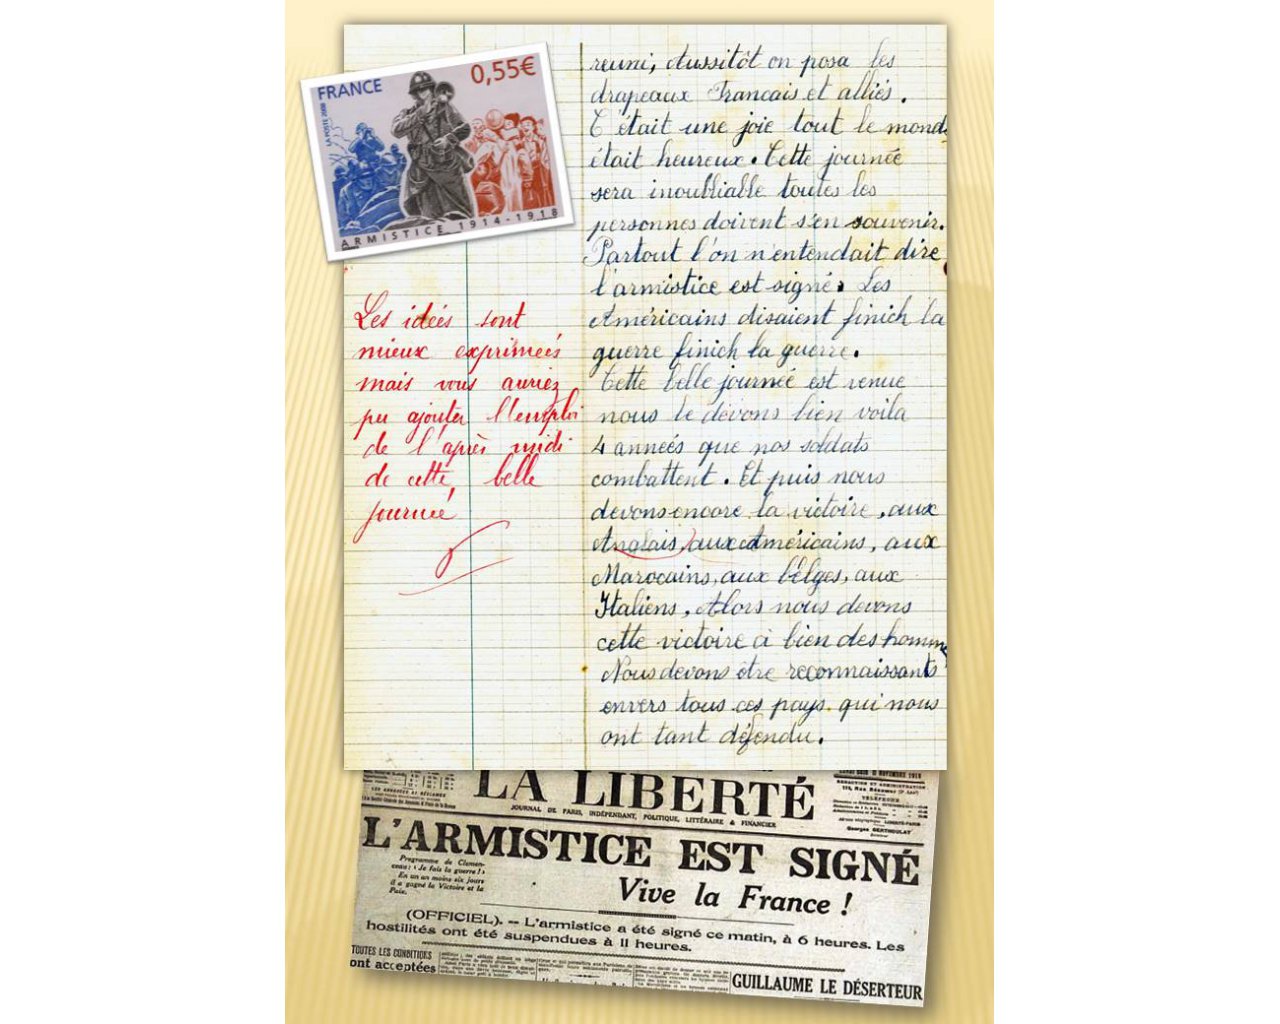 FRANCE
0,55€
LA POSTE 2008
ARMISTICE 1914-1918
reuni, Aussitôt on posa les
drapeaux Francais et alliés.
C'était une joie tout le monde
était heureux. Cette journée
sera inoubliable toutes les
personnes doivent s'en souvenir.
Partout l'on n'entendait dire
l'armistice est signé. Les
Américains disaient finich la
guerre finich la guerre.
Cette belle journée est venue
nous le devons bien voila
4 anneés que nos soldats
combattent. Et puis nous
devons encore la victoire, aux
Anglais, aux Américains, aux
Marocains, aux bélges, aux
Italiens, Alors nous devons
cette victoire à bien des homme
Nous devons etre reconnaissants
envers tous ces pays qui nous
ont tant défendu.
Les idées sont
mieux exprimeés
mais vous auriez
pu ajouter l'emploi
de l'après midi
de cette belle
journeé
LA LIBERTÉ
JOURNAL DE PARIS, INDÉPENDANT, POLITIQUE, LITTÉRAIRE & FINANCIER
RÉDACTION ET ADMINISTRATION
TÉLÉPHONE
Georges BERTHOULAT
L'ARMISTICE EST SIGNÉ
Programme de Clemen-
ceau : « Je fais la guerre ! »
En un an moins six jours
il a gagné la Victoire et la
Paix.
Vive la France !
(OFFICIEL). — L'armistice a été signé ce matin, à 6 heures. Les
hostilités ont été suspendues à 11 heures.
TOUTES LES CONDITIONS
ont acceptées
GUILLAUME LE DÉSERTEUR